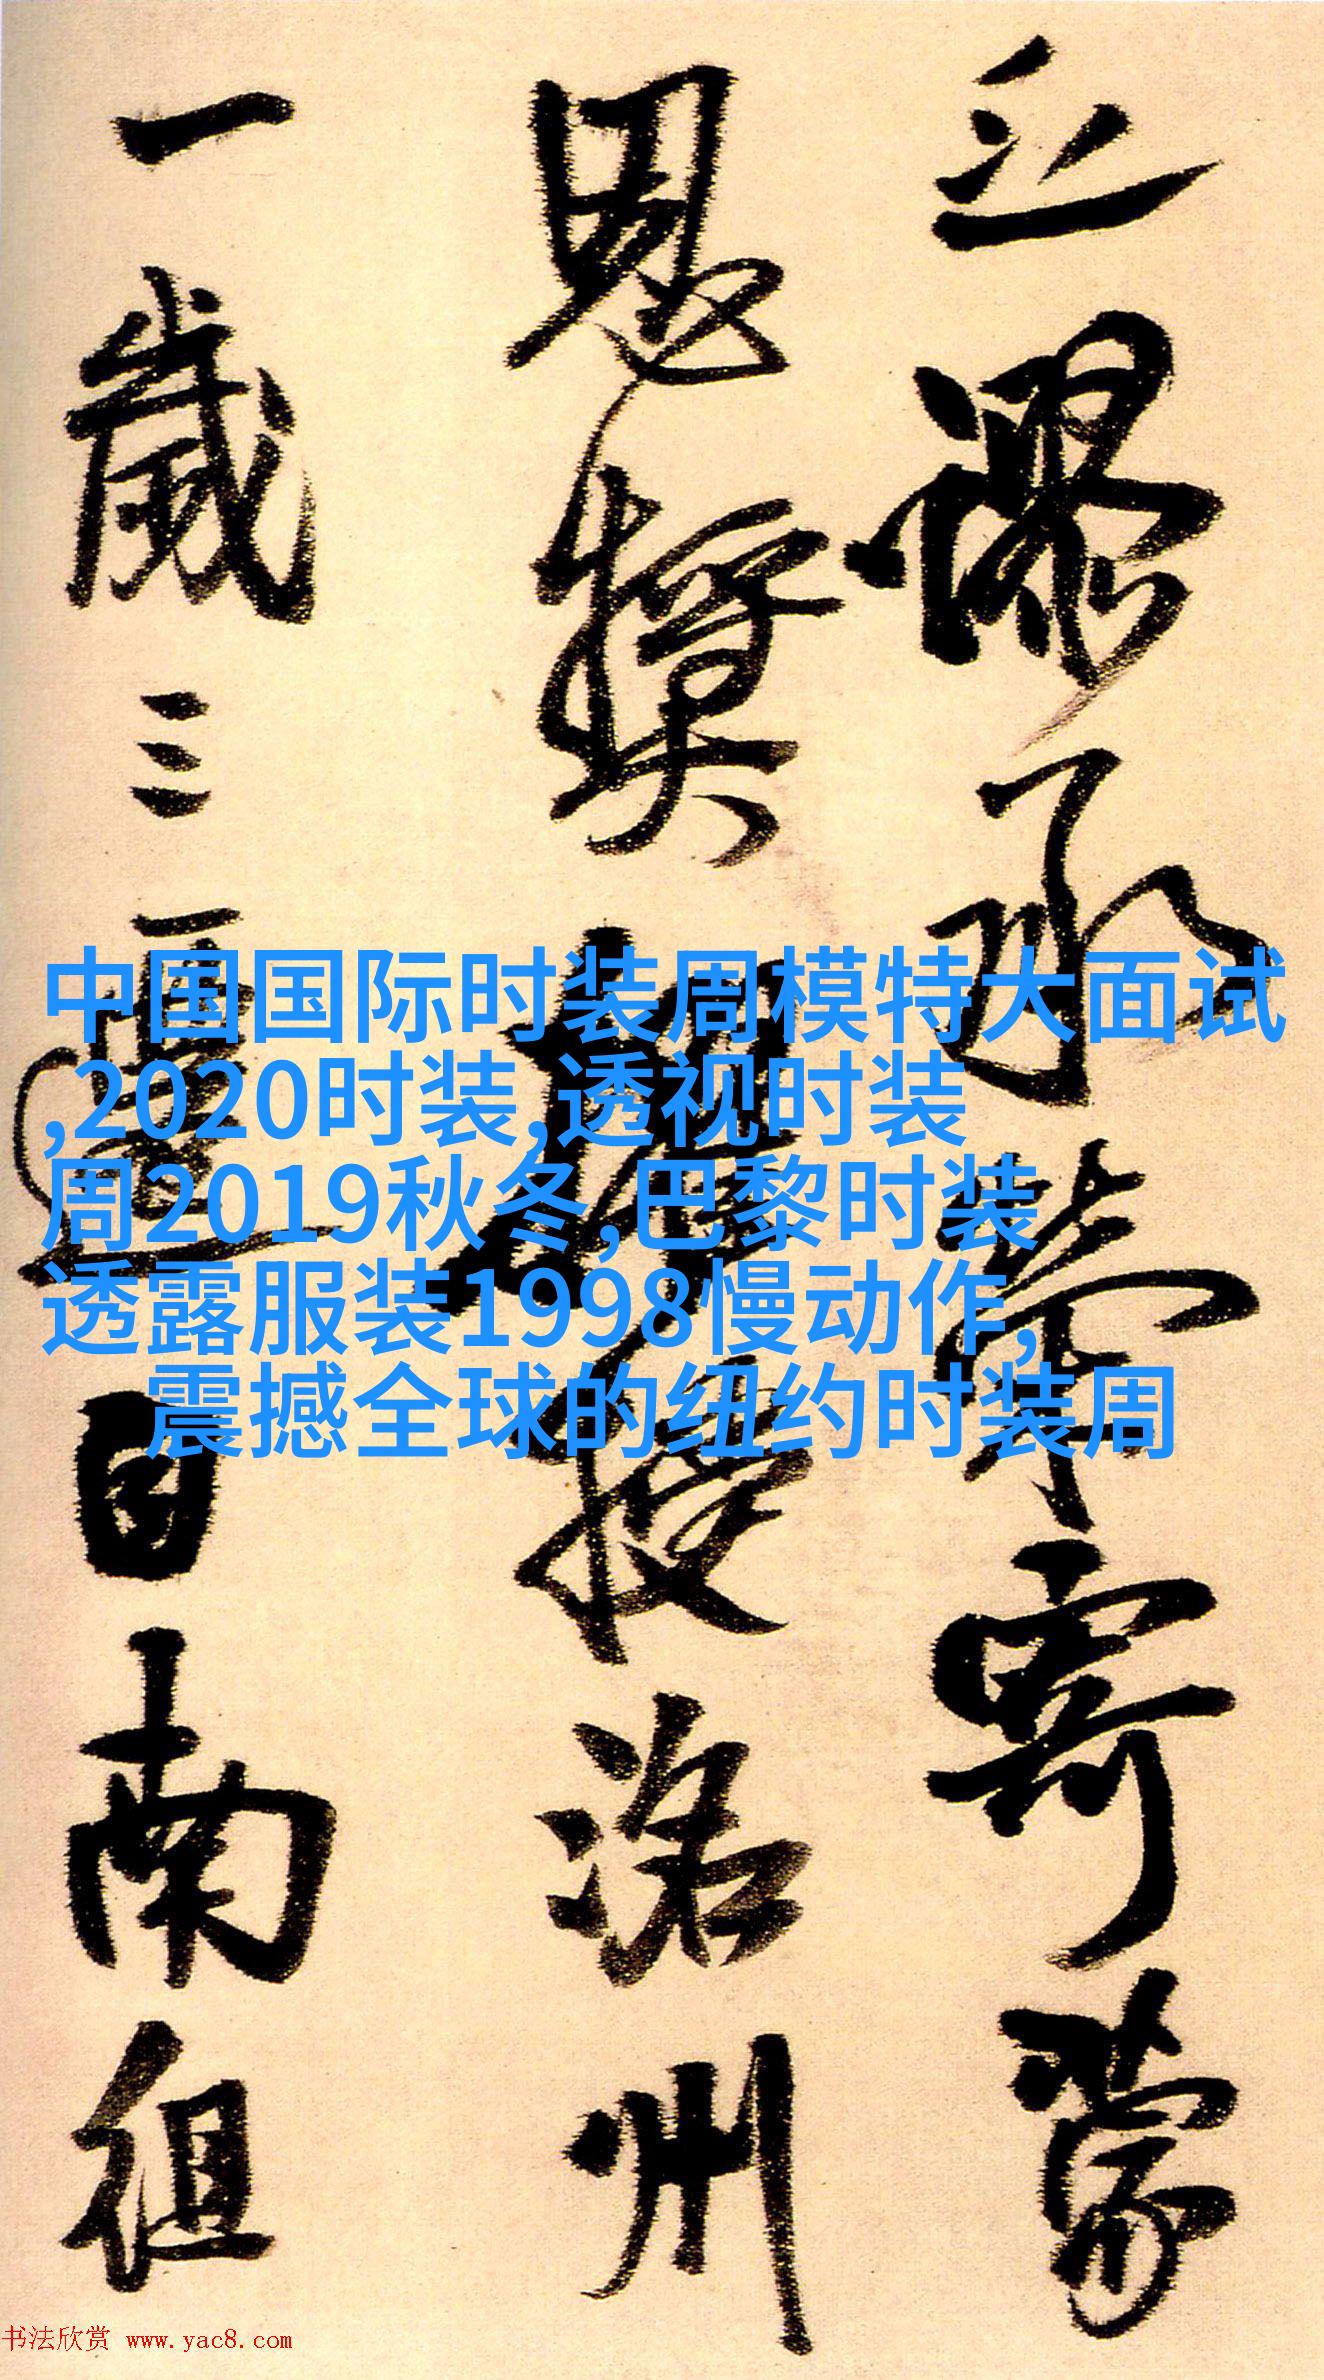 謬承榮寄蒙
恩獎授洛州
一歲三遷自南徂
中国国际时装周模特大面试
,2020时装,透视时装
周2019秋冬,巴黎时装
透露服装1998慢动作,
震撼全球的纽约时装周
书法欣赏 www.yac8.com